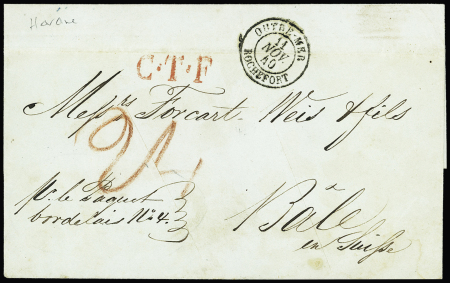 Havane
OUTRE-MER
11
NOV.
40
ROCHEFORT
C.T.F
Messrs Forcart Weis & fils
24
pr. le Paquet
bordelais No 4.
Bâle
en Suisse